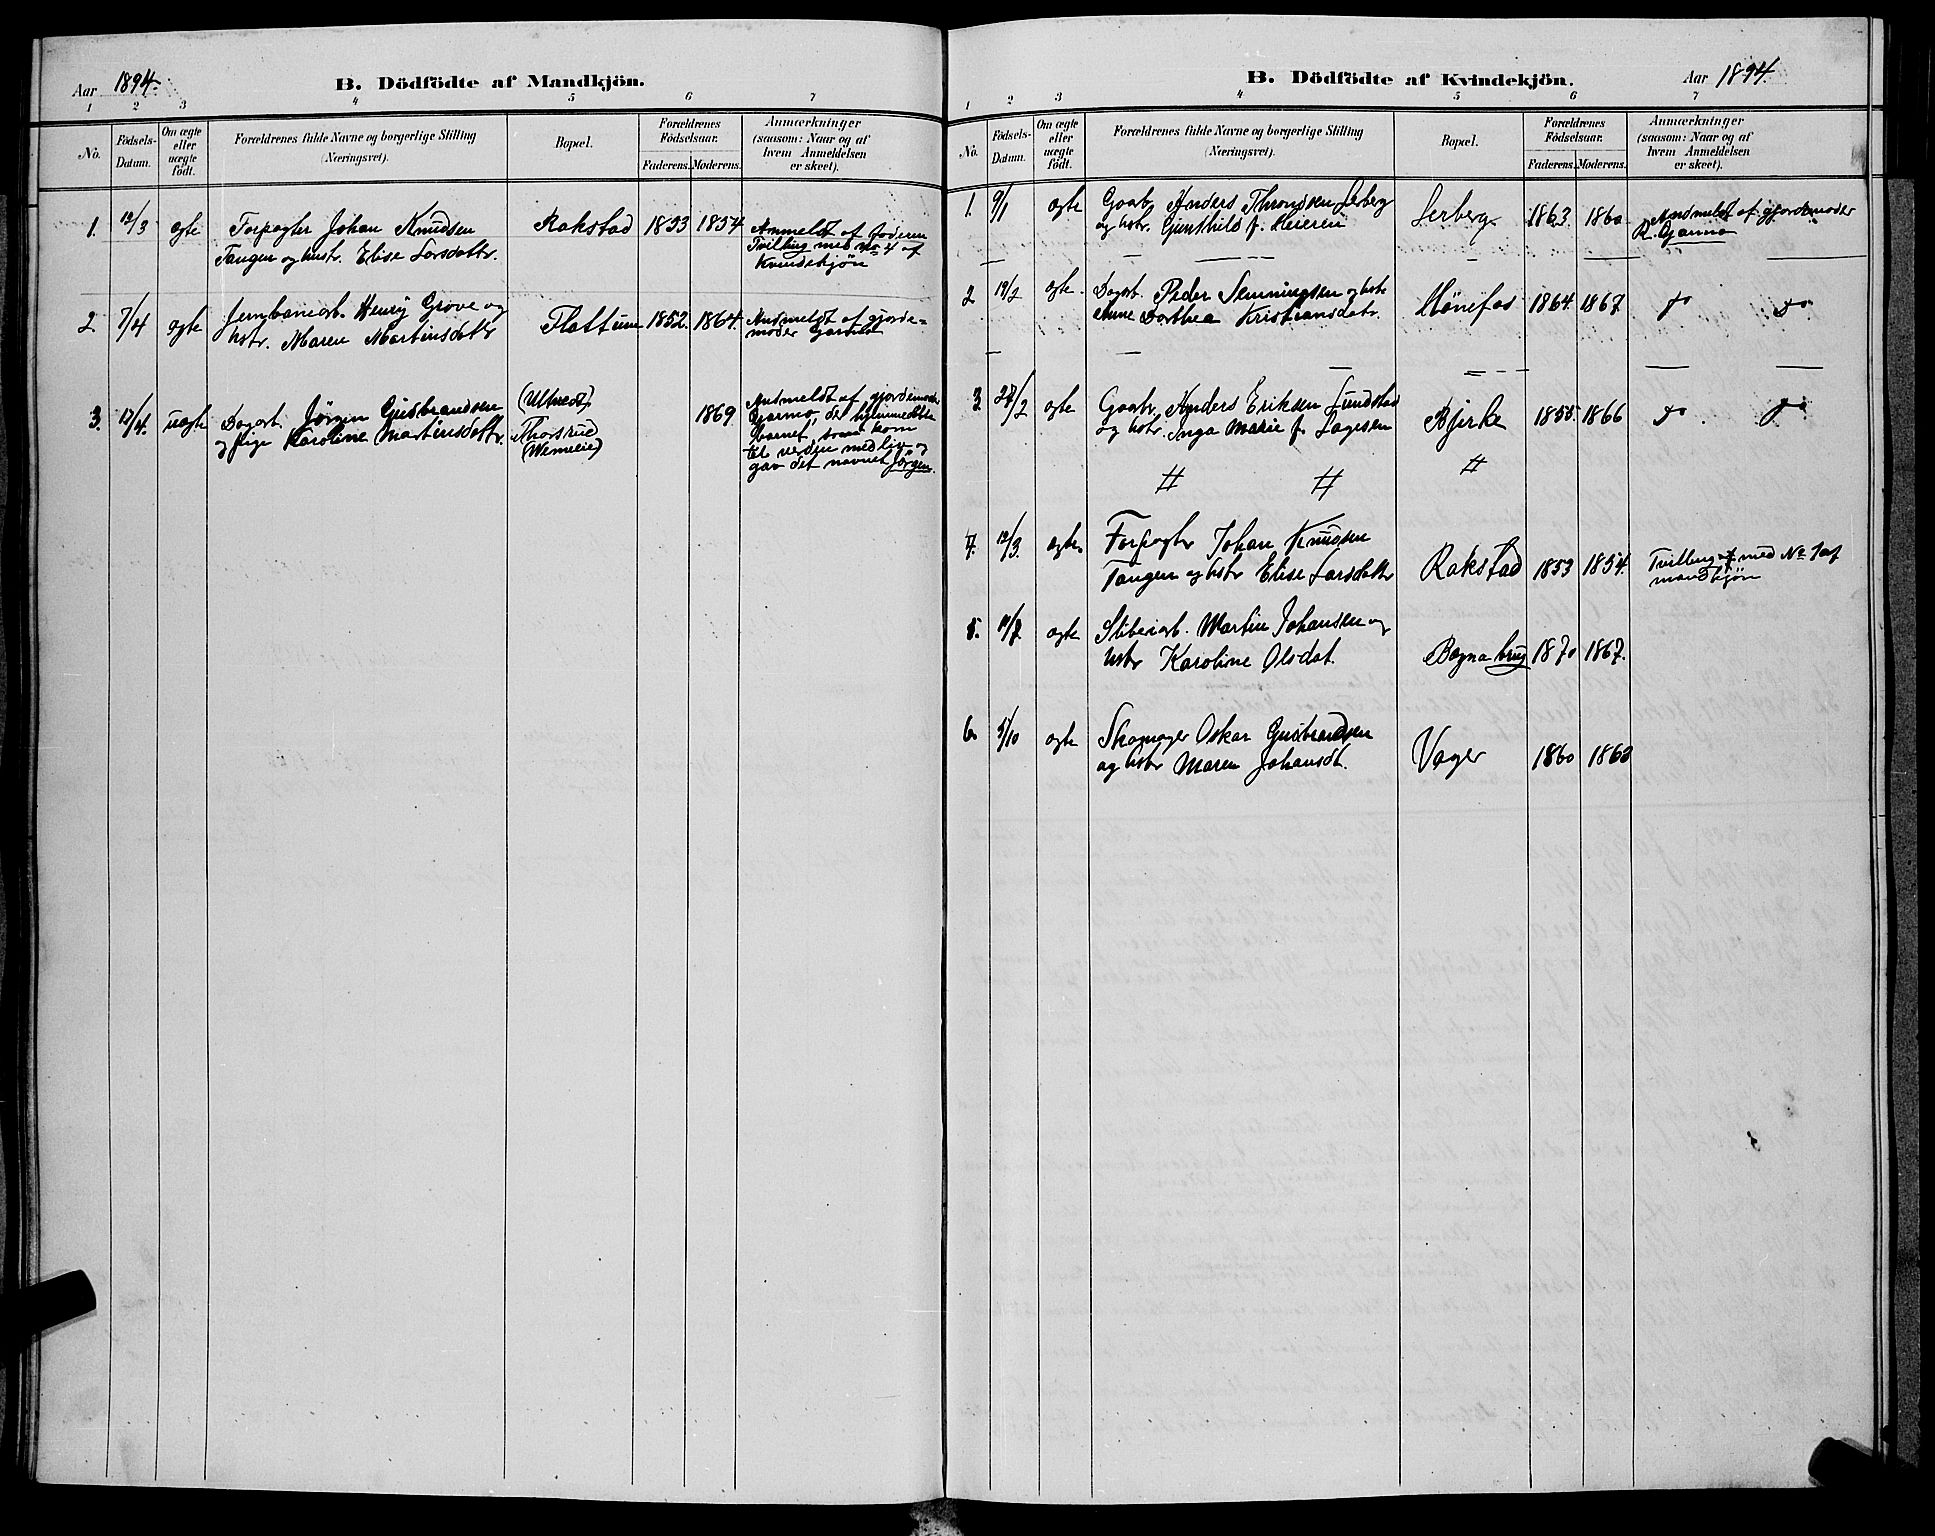 Aar 1894.
B. Dödfödte af Mandkjön.
1 2 3 4 5 6 7
No.
Födsels-
Datum.
Om ægte
eller
uægte
født.
Forældrenes fulde Navne og borgerlige Stilling
(Næringsvei).
Bopæl.
Forældrenes
Födselsaar.
Faderens. Moderens.
Anmærkninger
(saasom: Naar og af
hvem Anmeldelsen
er skeet).
1. 12/3 ægte Forpagter Johan Knudsen
Tangen og hustr. Elise Larsdattr.
Rakstad 1853 1854
Anmeldt af faderen
Tvilling med No 4 af
Kvindekjön
2 7/4 ægte Jernbanearb. Henrij Grove og
hstr. Maren Martinsdattr
Flattum 1852. 1864.
Anmeldt af gjorde-
moder
3. 17/4. uægte Dagarb. Jörgen Gulbrandsen
og pige Karoline Martinsdattr.
Thorsrud
1869
Anmeldt af gjordemoder
Gjarmo, der hjemmedøbte
barnet, som kom
til verden med liv og
gav det navnet Jörgen.
B. Dödfödte af Kvindekjön.
Aar 1894.
1 2 3 4 5 6 7
No.
Födsels-
Datum.
Om ægte
eller
uægte
født.
Forældrenes fulde Navne og borgerlige Stilling
(Næringsvei).
Bopæl.
Forældrenes
Födselsaar.
Faderens. Moderens.
Anmærkninger
(saasom: Naar og af
hvem Anmeldelsen
er skeet).
1. 9/1 ægte Gaabr. Anders Throndsen Lerberg
og hstr. Gunhild f. Heieren
Lerberg 1863. 1860
Anmeldt af gjordemoder
2 19/2 ægte. Dagarb. Peder Semmingsen og hstr
Anne Dorthea Kristiansdatr.
Hönefos 1864. 1867.
do do
3 27/2 ægte Gaabr. Anders Eriksen Lundstad
og hstr. Inga Marie f. Lagesen
Bjerke 1855. 1866
do. do
4. 12/3. ægte. Forpagtr Johan Knudsen
Tangen og hstr Elise Larsdattr
Rakstad 1853 1854.
Tvilling med No 1 af
mandkjön
5. ægte Sliberiarb. Martin Johansen og
hstr Karoline Olsdat.
Bægna brug 1870 1867.
6. 5/10 ægte Skomager Oskar Gulbrandsen
og hstr Maren Johansdt.
Vager 1860 1863